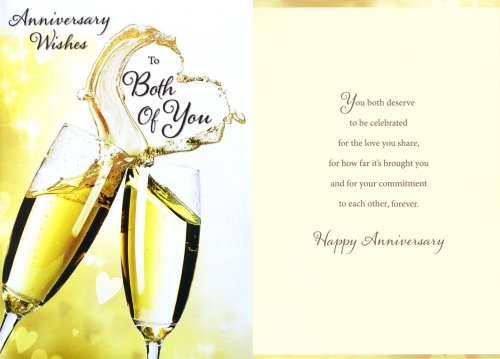 Anniversary
Wishes
To
Both
Of You
You both deserve
to be celebrated
for the love you share,
for how far it's brought you
and for your commitment
to each other, forever.
Happy Anniversary